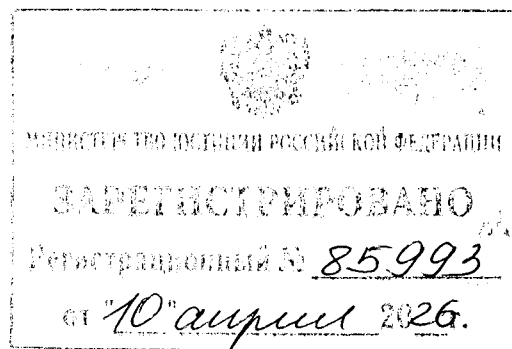 МИНИСТЕРСТВО ЮСТИЦИИ РОССИЙСКОЙ ФЕДЕРАЦИИ
ЗАРЕГИСТРИРОВАНО
Регистрационный № 85993
от "10" апреля 2026.